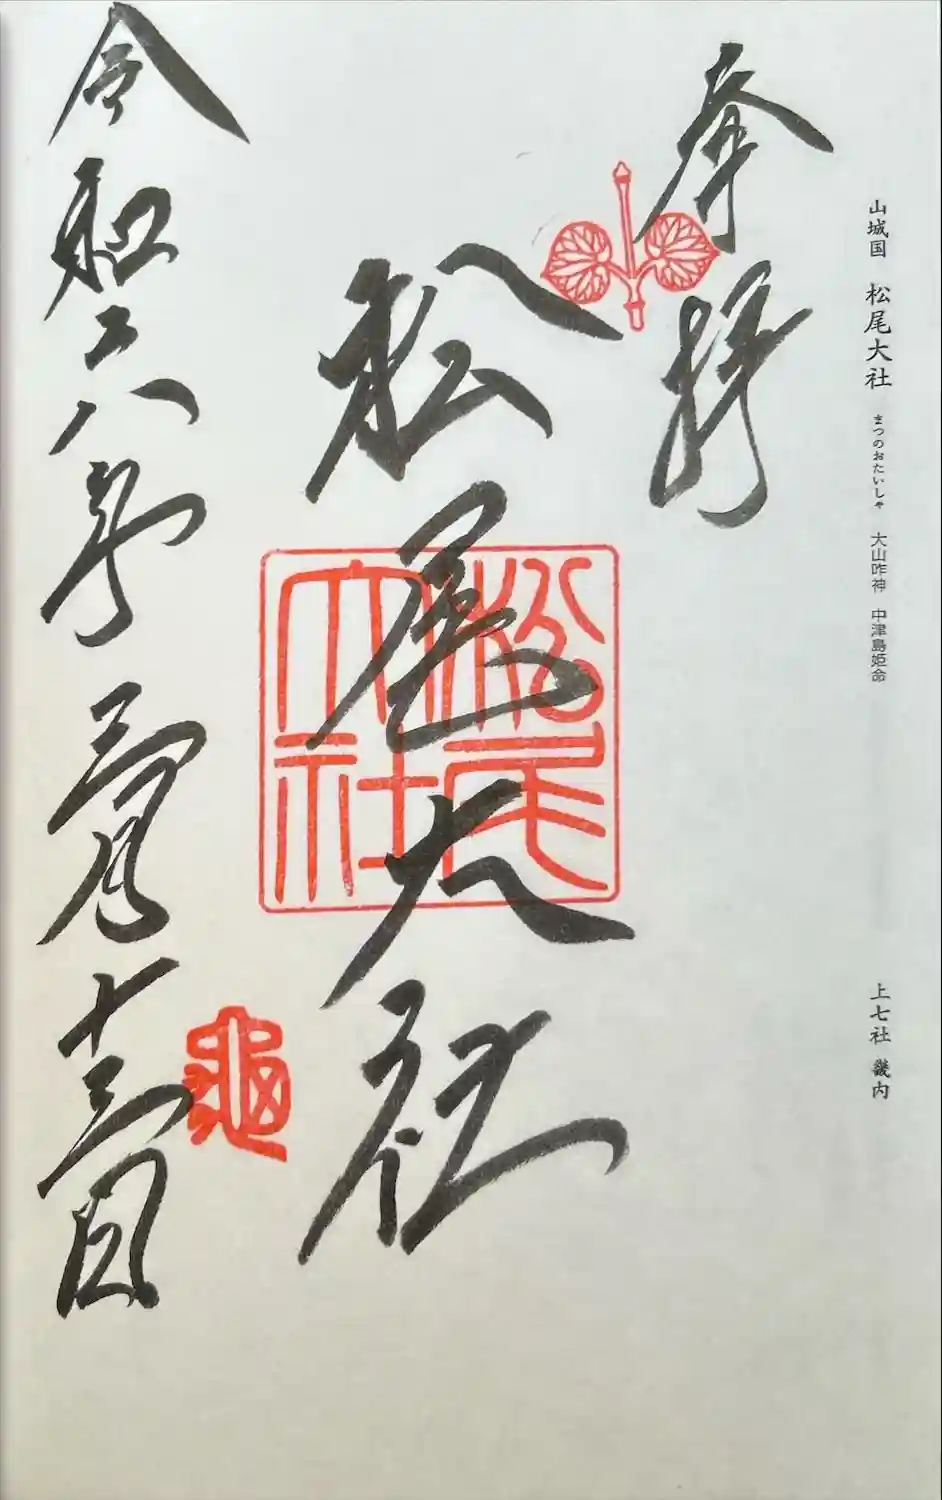 山城国 松尾大社 まつのおたいしゃ 大山咋神 中津島姫命
上七社 畿内
奉拝
松尾大社
松尾大社
亀
令和六年三月十三日